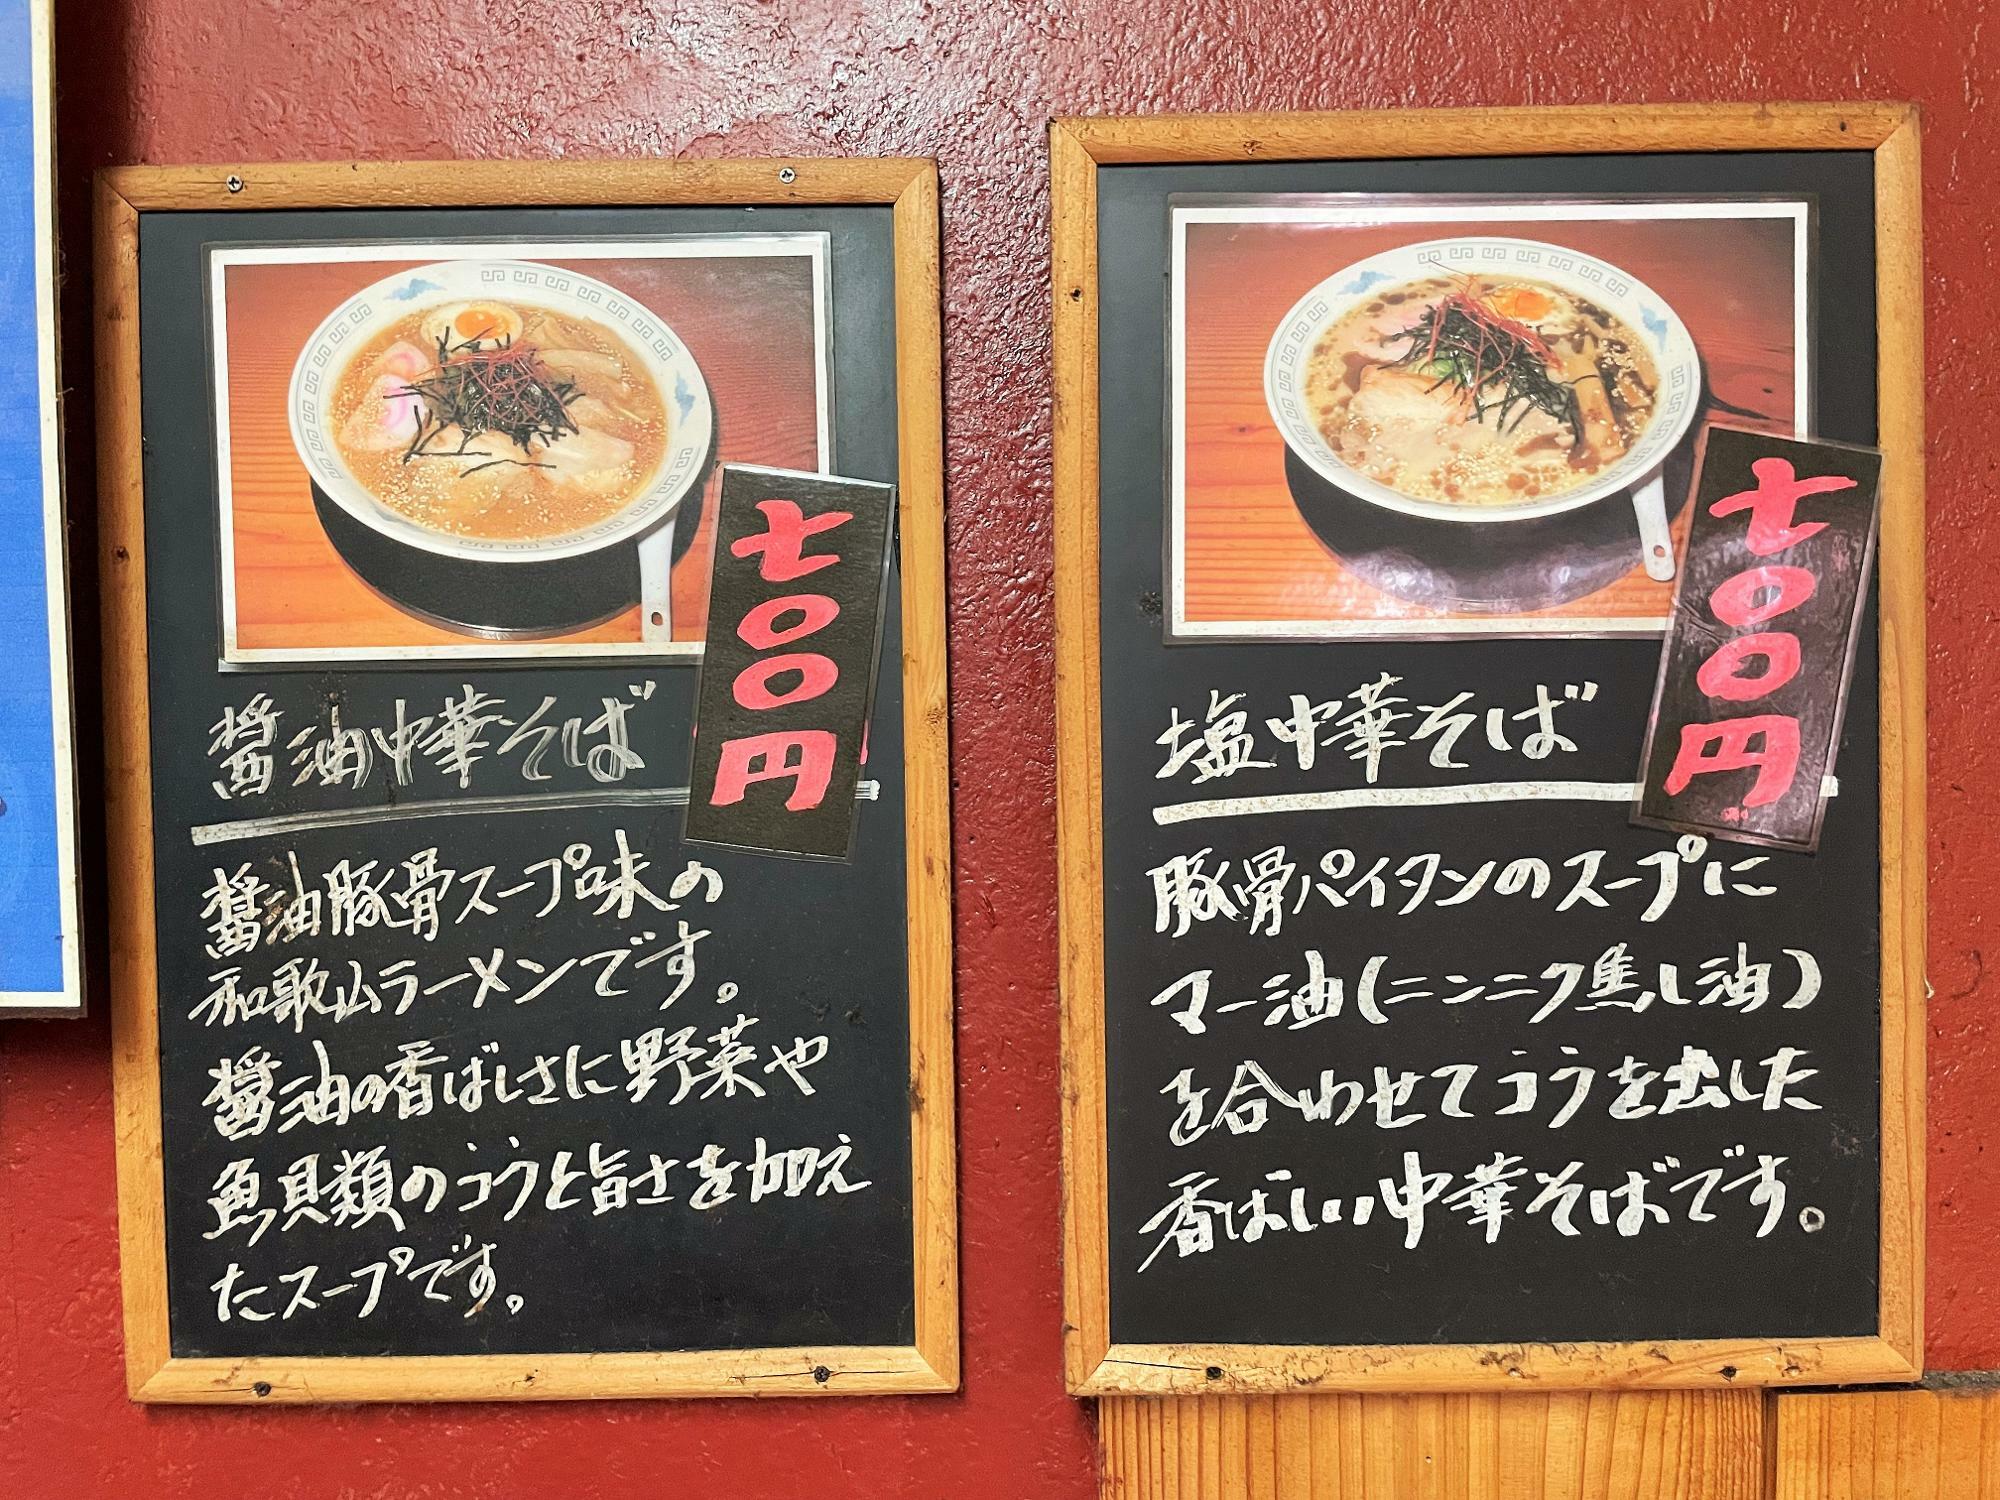 醤油中華そば
七〇〇円
醤油豚骨スープ味の
和歌山ラーメンです。
醤油の香ばしさに野菜や
魚貝類のコクと旨さを加え
たスープです。
塩中華そば
七〇〇円
豚骨パイタンのスープに
マー油(ニンニク焦し油)
を合わせてコクを出した
香ばしい中華そばです。